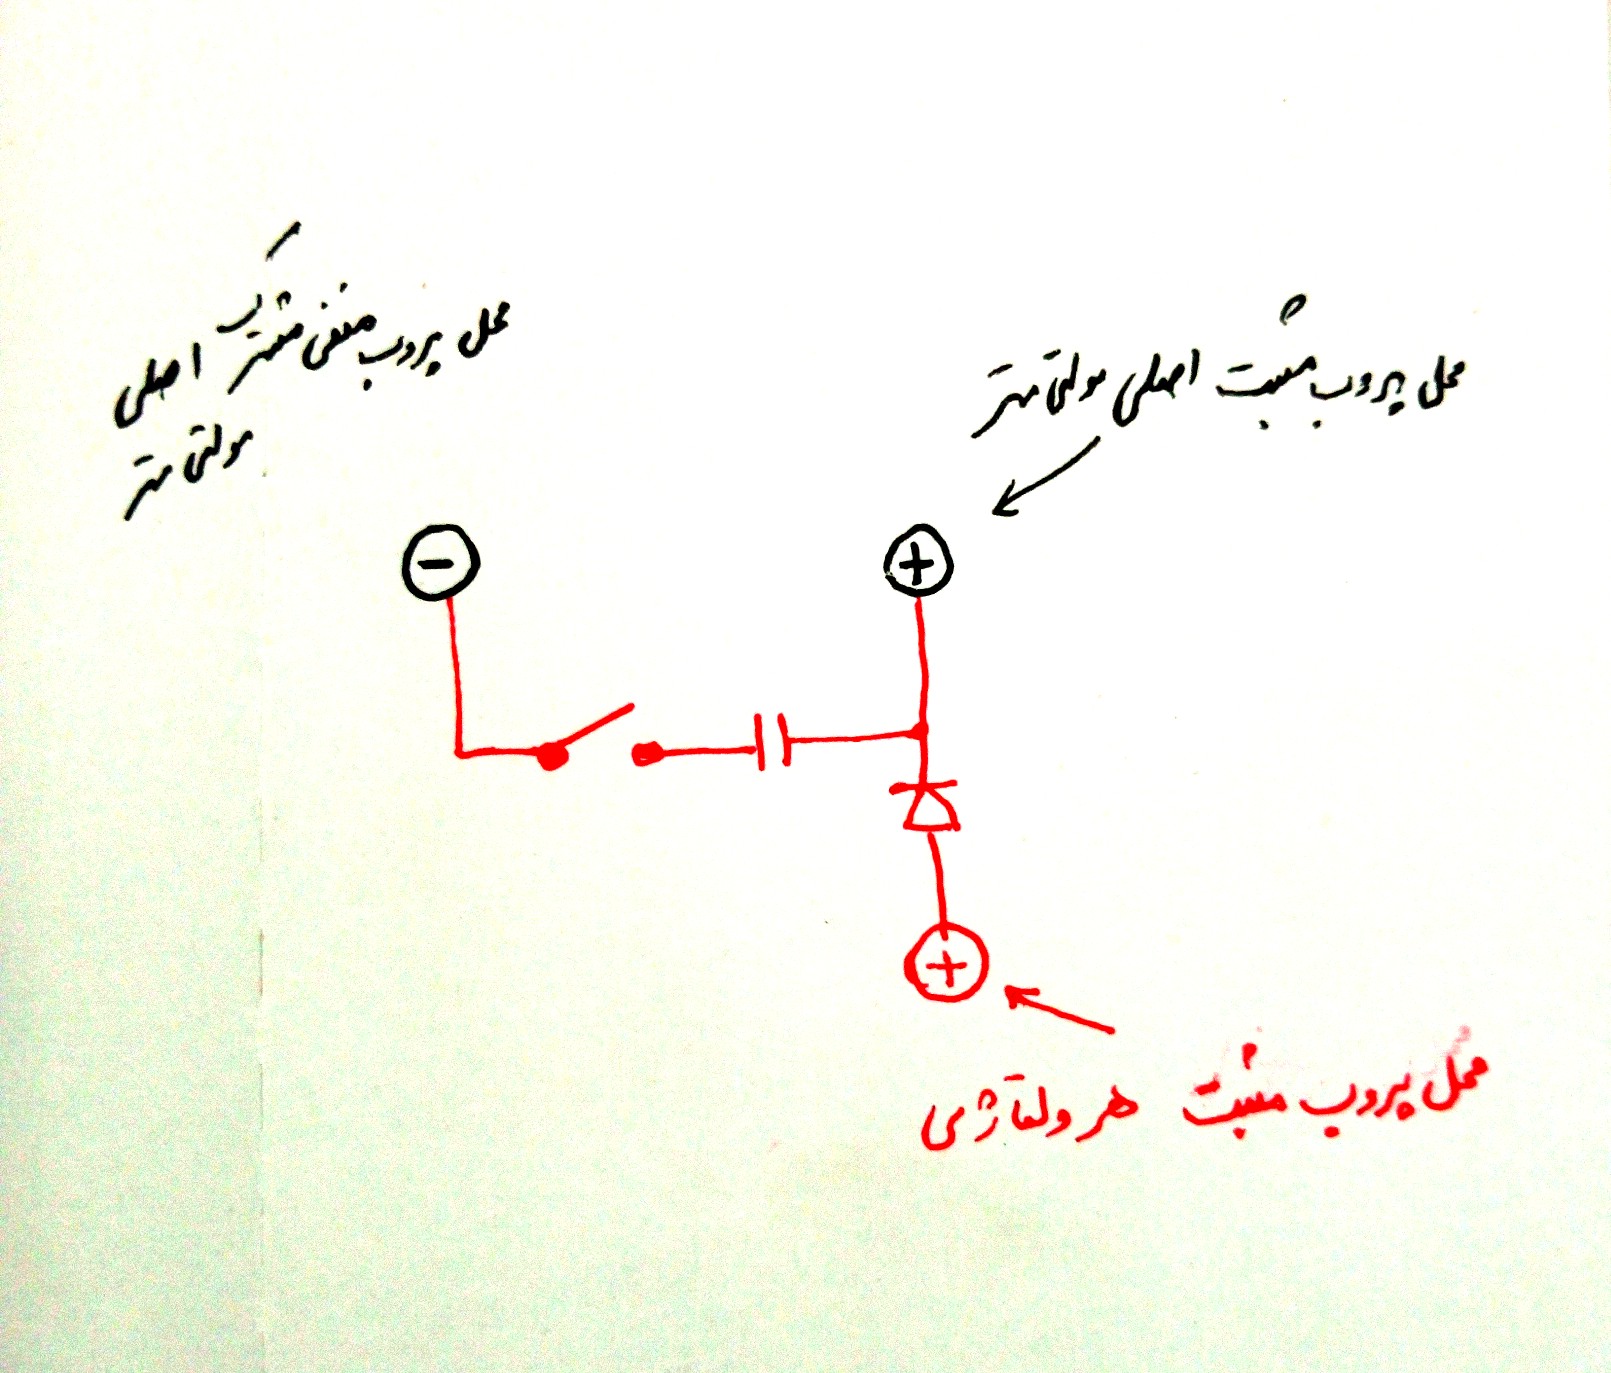 محل پروب منفی مشترک اصلی
مولتی متر
محل پروب مثبت اصلی مولتی متر
−
+
+
محل پروب مثبت هر ولتاژی